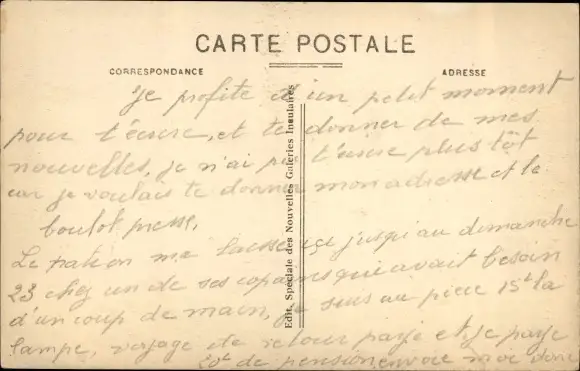 CARTE POSTALE
CORRESPONDANCE
ADRESSE
Edit. Spéciale des Nouvelles Galeries Insulaires
Je profite d'un petit moment
pour t'écrire, et te donner de mes
nouvelles, je n'ai pu t'écrire plus tôt
car je voulais te donner mon adresse et le
boulot presse,
Le patron me laisse ici jusqu'au dimanche
23 chez un de ses copains qui avait besoin
d'un coup de main, je suis au pièce 15c la
lampe, voyage de retour payé et je paye
20f de pension, envoie moi donc